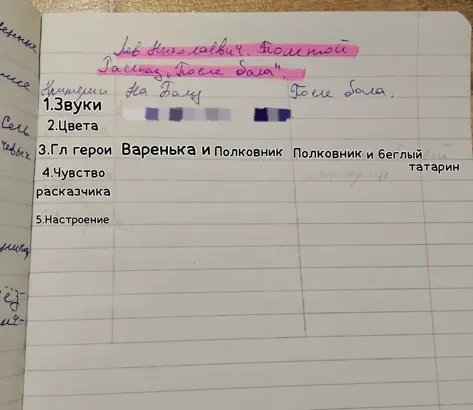 Лев Николаевич Толстой
Рассказ „После бала".
Критерии На Балу После бала.
1.Звуки
2.Цвета
3.Гл герои Варенька и Полковник Полковник и беглый татарин
4.Чувство расказчика
5.Настроение